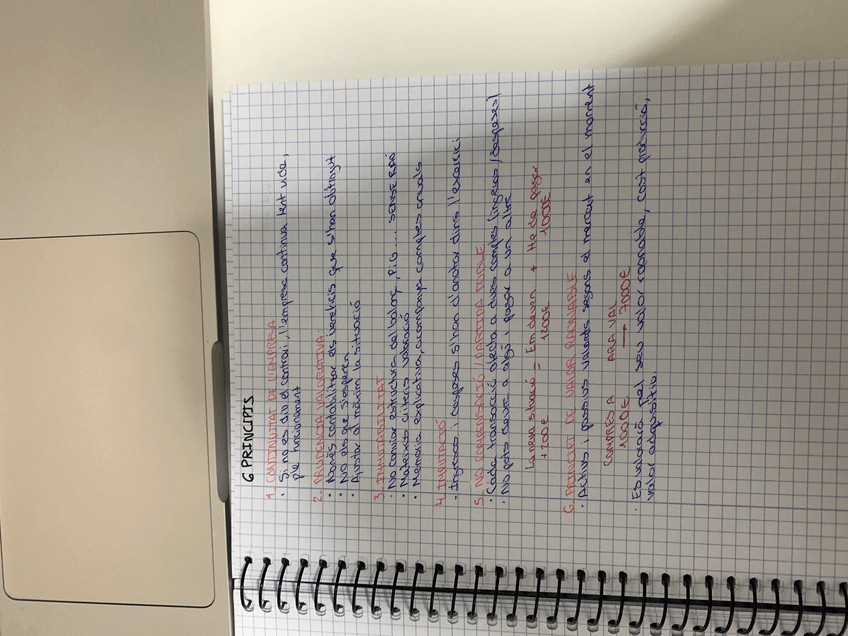 6 PRINCIPIS
1. CONTINUITAT DE L'EMPRESA
· Si no es diu el contrari, l'empresa continua tent vida,
ple funcionament
2. PRUDÈNCIA VALORATIVA
· Només comptabilitzar els beneficis que s'han obtingut
· No els que s'esperen
· Ajustar al màxim la situació
3. INMUTABILITAT
· No canviar estructura del balanç, PiG ... SENSE RAÓ
· Mateixos criteris valoració
· Memòria explicativa, acompanya comptes anuals
4. IMPUTACIÓ
· Ingressos i despeses s'han d'anotar dins l'exercici
5. NO COMPENSACIÓ / PARTIDA DOBLE
· Cada transacció afecta a dues comptes (ingressos / despeses)
· No pots deure a algú i pagar a un altre
La meva situació = Em deuen + He de pagar
+200€ 1200€ 1000€
6. PRINCIPI DE VALOR RAONABLE
· Actius i passius valorats segons el mercat en el moment
COMPRES A ARA VAL
1000€ → 7000€
· Es valora pel seu valor raonable, cost producció,
valor adquisitiu.